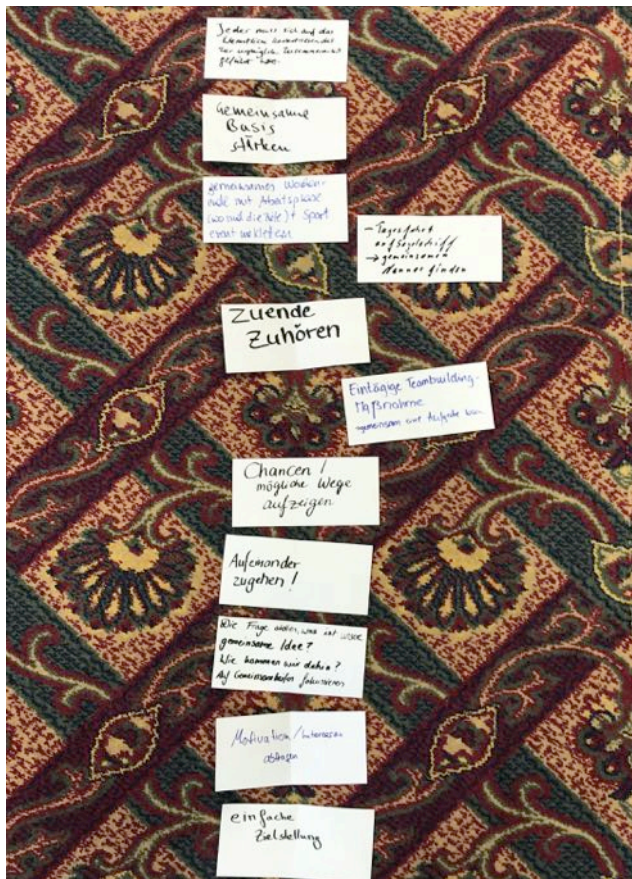 Jeder muss sich auf das
Wesentliche konzentrieren, das
zur
geführt
Gemeinsame
Basis
stärken
gemeinsames Wochen-
ende mit Arbeitsphase
(wo sind die Ziele) + Sport
event
- Tagesfahrt
auf Segelschiff
→ gemeinsamen
Nenner finden
Zuende
Zuhören
Eintägige Teambuilding-
Maßnahme
gemeinsam eine Aufgabe
Chancen /
mögliche Wege
aufzeigen
Aufeinander
zugehen!
Die Frage stellen, was ist unsere
gemeinsame Idee?
Wie kommen wir dahin?
Auf Gemeinsamkeiten fokussieren
Motivation / Interessen
abfragen
einfache
Zielstellung